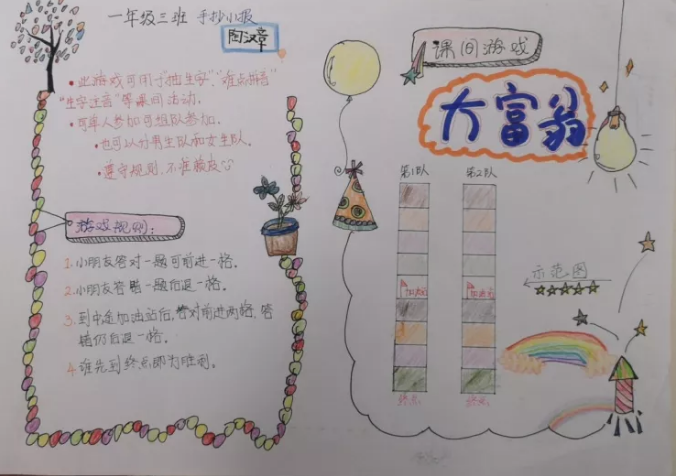 一年级三班 手抄小报
陶汉章
• 此游戏可用于"抽生字"、"难点拼音"
"生字注音"等课间活动。
• 可单人参加可组队参加。
• 也可以分男生队和女生队。
• 遵守规则,不准
游戏规则:
1. 小朋友答对一题可前进一格。
2. 小朋友答错一题后退一格。
3. 到中途加油站后,答对前进两格,答
错仍后退一格。
4. 谁先到终点即为胜利。
课间游戏
大富翁
第1队 第2队
加油站 加油站
终点 终点
示范图